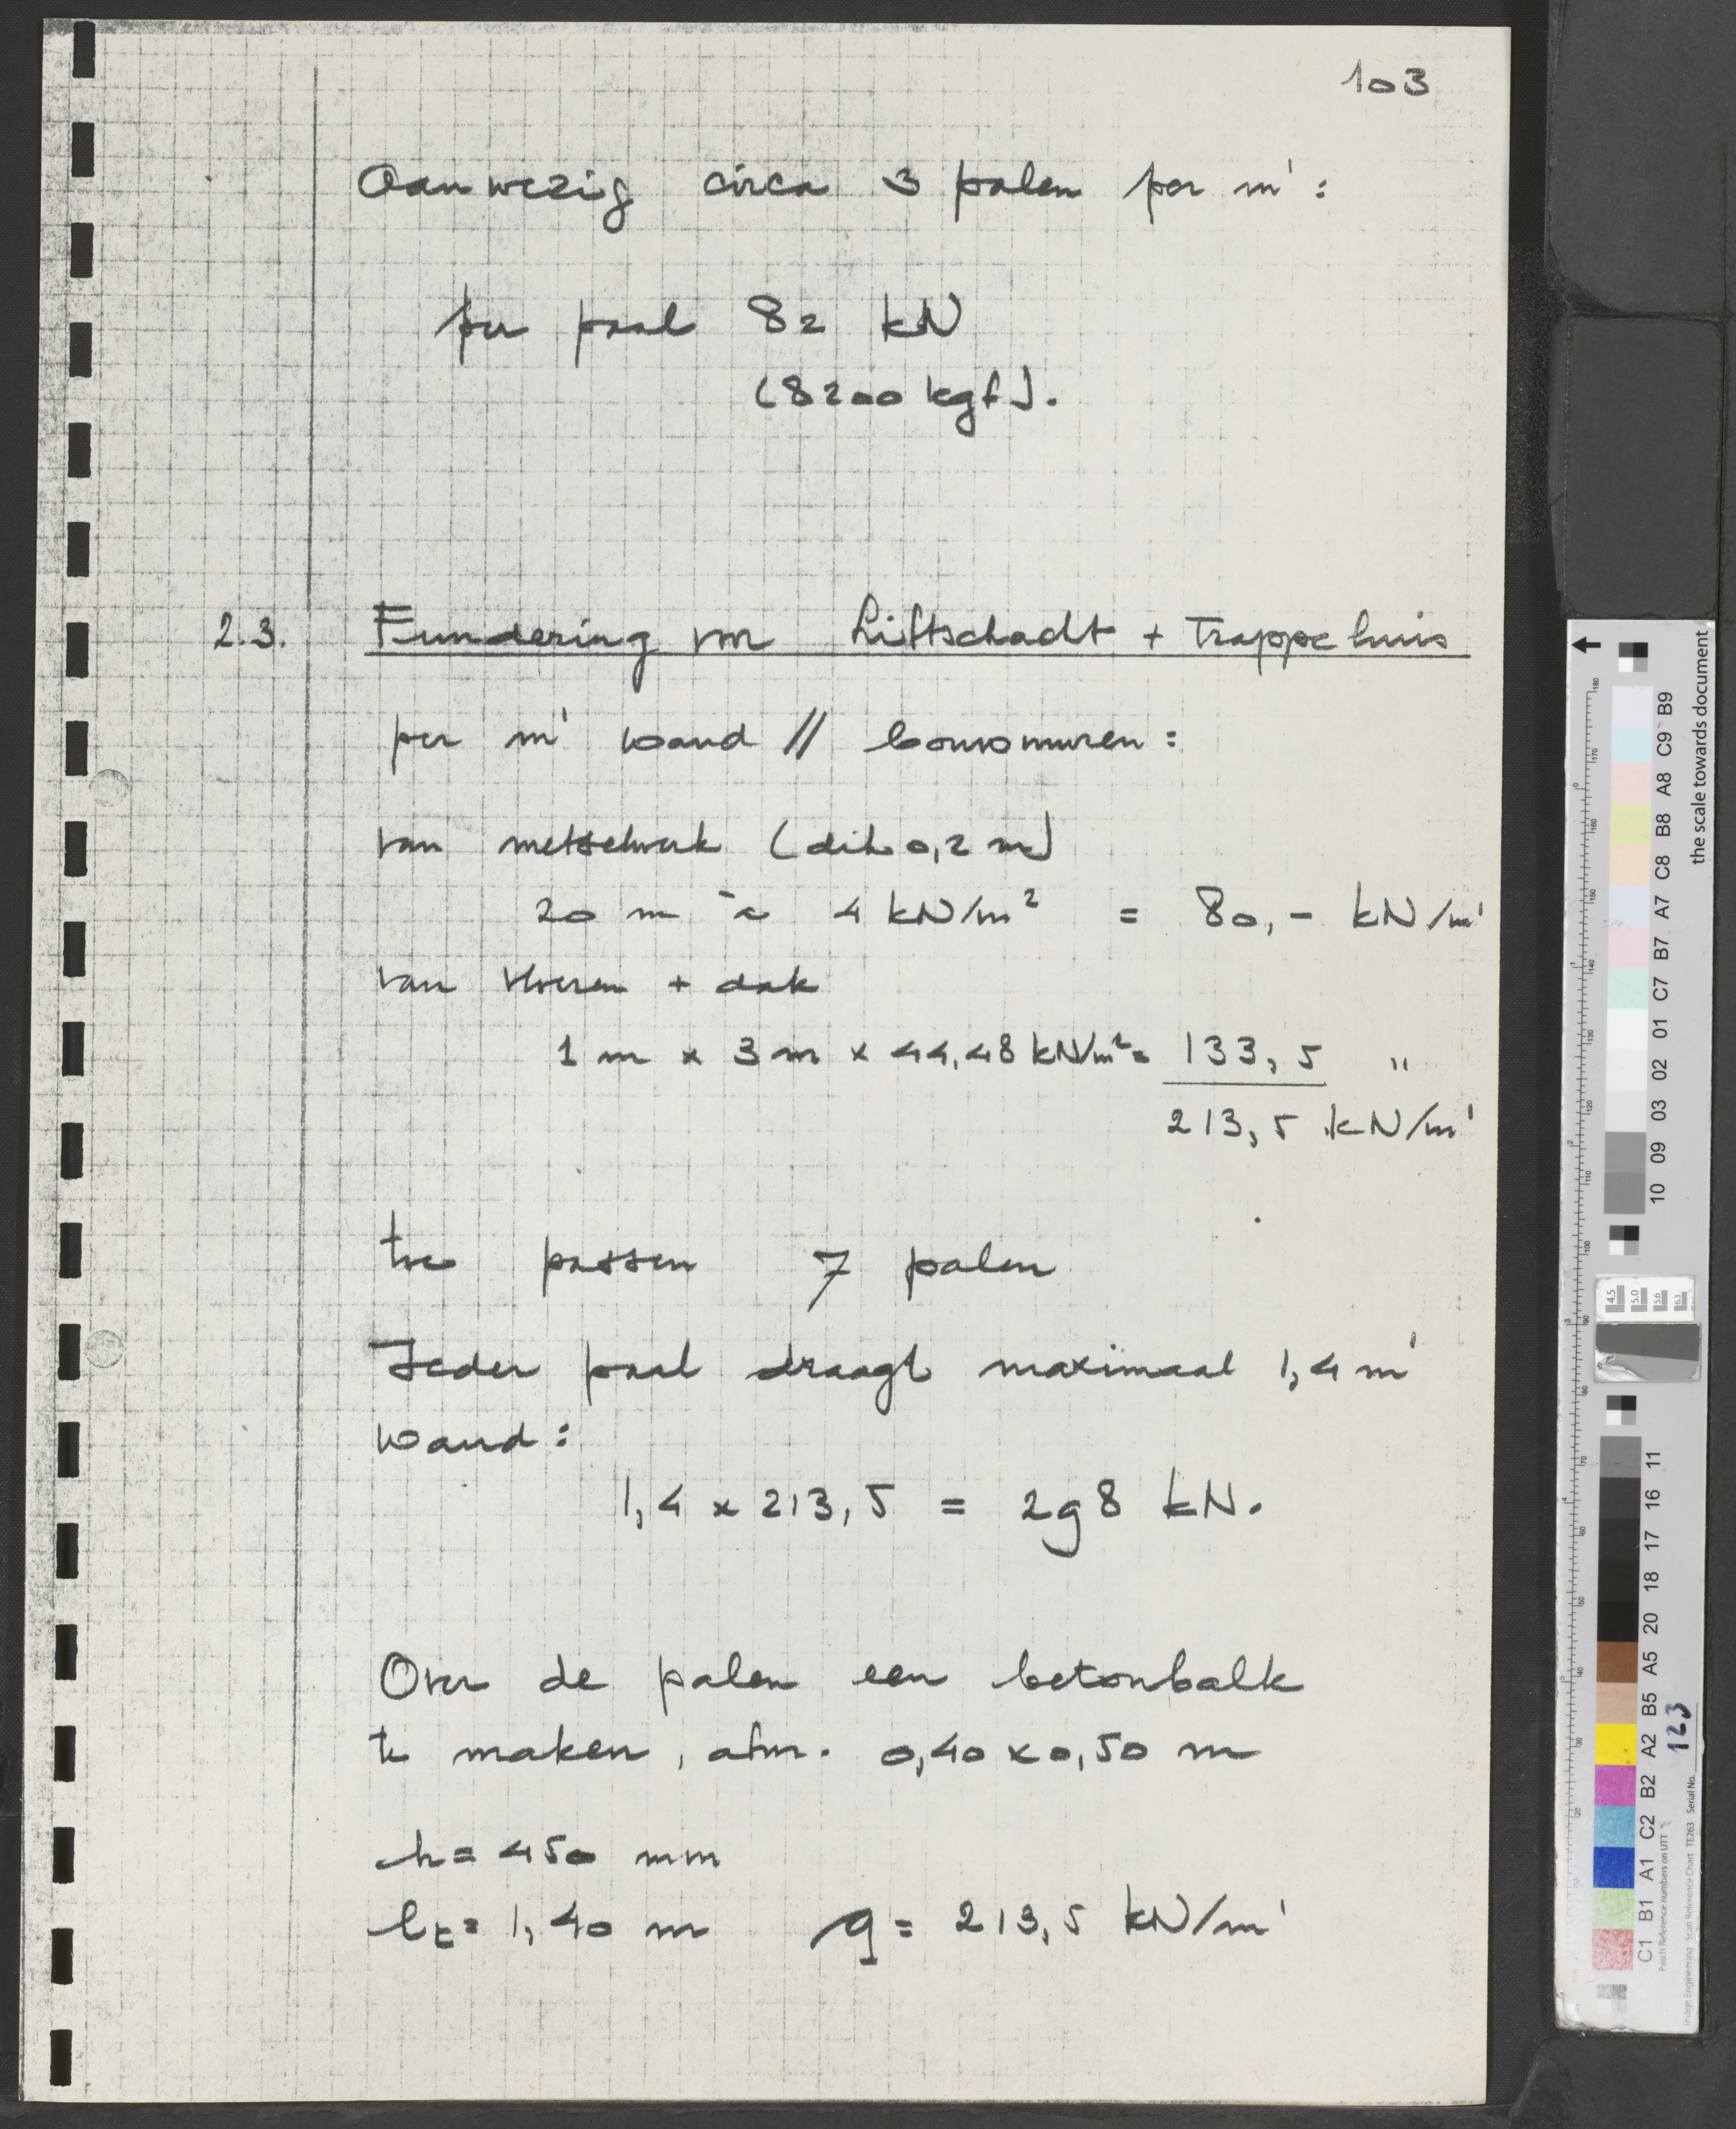 103
Aanwezig circa 3 palen per m':
per paal 82 kN
(8200 kgf).
2.3. Fundering vor Liftschacht + Trappehuis
per m' wand // bouwmuren:
van metselwerk (dik 0,2 m)
20 m à 4 kN/m² = 80,- kN/m'
van vloeren + dak
1 m x 3 m x 44,48 kN/m² = 133,5 "
213,5 kN/m'
toe passen 7 palen
Ieder paal draagt maximaal 1,4 m'
wand:
1,4 x 213,5 = 298 kN.
Over de palen een betonbalk
te maken, afm. 0,40 x 0,50 m
h = 450 mm
lt = 1,40 m q = 213,5 kN/m'
the scale towards document
C1 B1 A1 C2 B2 A2 B5 A5 20 18 17 16 11
10 09 03 02 01 C7 B7 A7 C8 B8 A8 C9 B9
4.5 5.0 5.6 6.3
Image Engineering Scan Reference Chart TE263 Serial No. 123
Patch Reference numbers on UTT